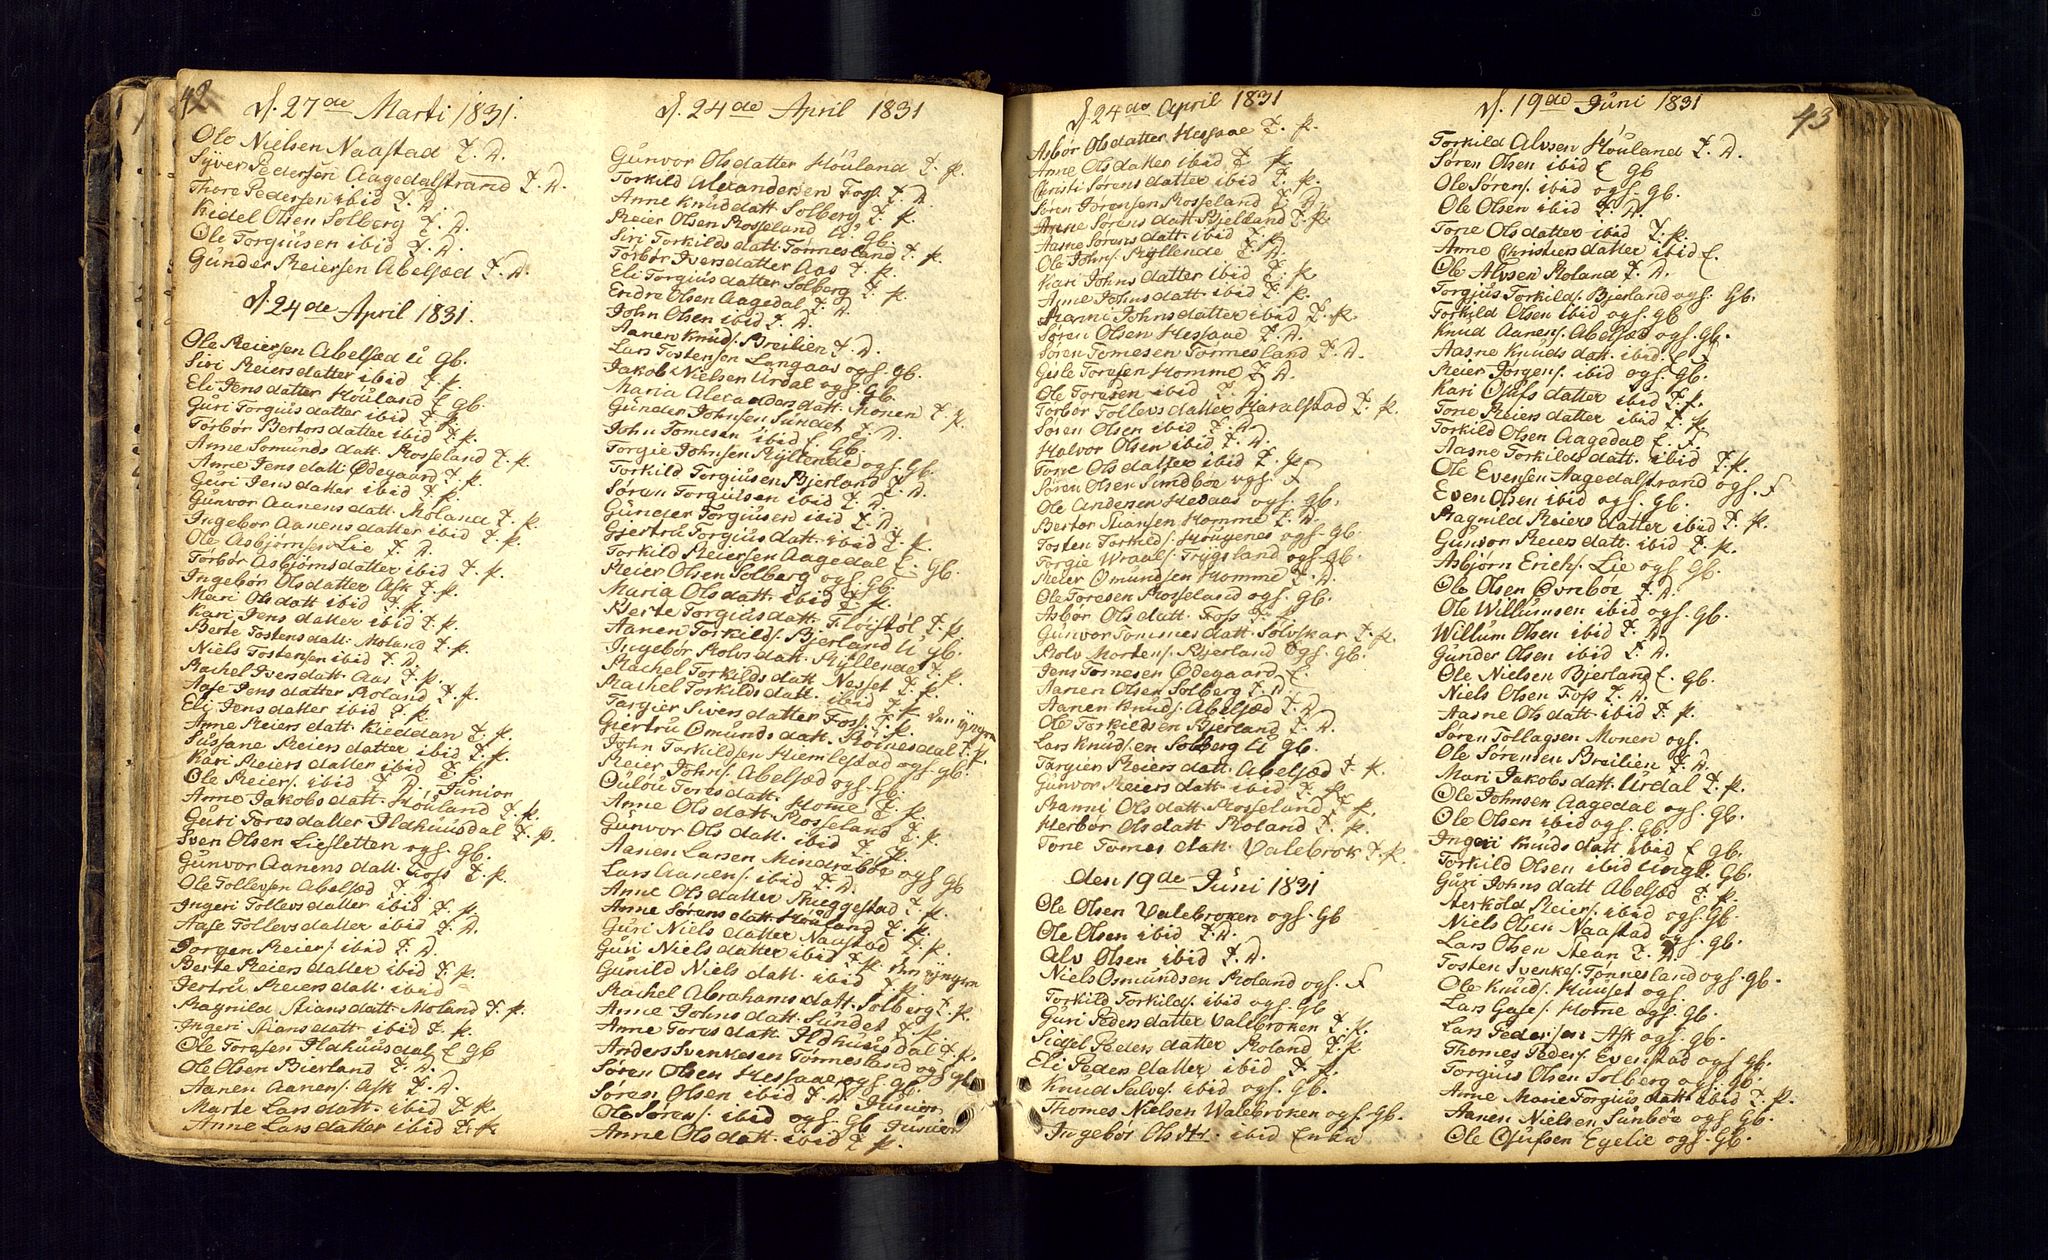 42
d. 27de Marti 1831.
Ole Nielsen Naastad T. D.
Syver Pedersen Aagedalstrand T. D.
Thore Pedersen ibid T. D.
Kidel Olsen Solberg T. D.
Ole Torgiusen ibid T. D.
Gunder Reiersen Abelsæd T. D.
d. 24de April 1831.
Ole Reiersen Abelsæd u gb.
Siri Reiersdatter ibid T. p.
Eli Jensdatter Houland E gb.
Guri Torgiusdatter ibid T. p.
Torbor Bertorsdatter ibid T. p.
Anne Somunds datt. Rosseland T. p.
Anne Jens datt. Ødegaard T. p.
Guri Jensdatter ibid T. p.
Gunvor Aanens datt. Roland T. p.
Ingebor Aanens datter ibid T. p.
Ole Asbjørnsen Lie T. D.
Torbor Asbjørnsdatter ibid T. p.
Ingebor Olsdatter Ask T. p.
Mari Olsdatt ibid T. p.
Kari Jens datter ibid T. p.
Berte Tostens datt. Moland T. p.
Niels Tostensen ibid T. D.
Rachel Ivers datt. Aas T. p.
Aase Jens datter Roland T. p.
Eli Jens datter ibid T. p.
Anne Reiers datt. Kieddan T. p.
Sussane Reiers datter ibid T. p.
Kari Reiers datter ibid T. p.
Ole Reiers. ibid T. D. Junior
Anne Jakobs datt. Houland T. p.
Guri Tores datter Ildhuusdal T. p.
Sven Olsen Liesletten ogs. gb.
Gunvor Aanens datt. Foss T. p.
Ole Tollevsen Abelsæd T. D.
Ingeri Tollevs datter ibid T. p.
Aase Tollevs datter ibid T. D.
Jørgen Reiers. ibid T. D.
Berte Reiers datter ibid T. p.
Jertru Reiers datt. ibid
Ragnild Stians datt. Moland T. p.
Ingeri Stians datt. ibid T. p.
Ole Toresen Ildhuusdal E gb
Ole Olsen Bierland T. D.
Aanen Aanens. Ask T. D.
Marte Lars datt. ibid T. p.
Anne Lars datter ibid T. p.
d. 24de April 1831
Gunvor Olsdatter Houland T. p.
Torkild Alexandersen Foss T. D.
Anne Knud datt. Solberg T. p.
Reier Olsen Rosseland u. gb.
Siri Torkilds datt. Tønnesland T. p.
Torbor Ivers datter Aas T. p.
Eli Torgius datter Solberg T. p.
Endre Olsen Aagedal T. D.
John Olsen ibid T. D.
Aanen Knuds. Breilien T. D.
Lars Tostensen Langaas ogs. gb.
Jakob Nielsen Urdal ogs. gb.
Maria Alexanders datt. Monen T. p.
Gunder Johnsen Sundet T. D.
John Tomesen ibid E gb.
Torgie Johnsen Kyllende ogs. gb.
Torkild Torgiusen Bjerland T. D.
Søren Torgiusen ibid T. D.
Gunder Torgiusen ibid T. D.
Gjertru Torgius datt. ibid T. p.
Torkild Reiersen Aagedal E. gb.
Reier Olsen Solberg ogs. gb.
Maria Ols datt. ibid T. p.
Berte Torgius datt. Fløistøl T. p.
Aanen Torkilds. Bjerland u gb.
Ingebor Rolvs datt. Kyllende T. p.
Rachel Torkilds datt Nesset T. p.
Rachel Torkilds datt. ibid T. p. den yngre
Targier Sivers datter Foss T. p.
Giertru Omunds datt. Roinesdal T. p.
John Torkildsen Hiemlestad ogs. gb.
Reier Johns. Abelsæd ogs. gb.
Oulou Tores datt. Home T. p.
Anne Ols datt. Rosseland T. p.
Gunvor Ols datt. ibid T. p.
Aanen Larsen Mindrebøe ogs gb
Lars Aanens. ibid T. D.
Anne Ols datter Skieggestad T. p.
Anne Sørens datt. Houland T. p.
Guri Niels datter Naastad T. p.
Guri Niels datter ibid T. p. den yngre
Gunild Niels datt. ibid T. p.
Rachel Abrahams datt. Solberg T. p.
Anne Johns datt. Sundet T. p.
Anne Tores datt. Ildhuusdal T. p.
Anders Svenkesen Tønnesland ogs gb.
Søren Olsen Hessaae ogs. gb.
Søren Olsen ibid T. D. Junior
Ole Sørens. ibid ogs. gb Junior
Anne Ols datt. ibid T. p.
d. 24de April 1831
Asbor Olsdatter Hessaae T. p.
Anne Olsdatter ibid T. p.
Christi Sørens datter ibid T. p.
Søren Jørensen Rosseland T. D.
Anne Sørens datt Bieldand T. p.
Aasne Sørens datt. ibid T. p.
Ole Johns. Kyllende T. D.
Kari Johns datter ibid T. p.
Anne Johns datt. ibid T. p.
Ranni Johns datter ibid T. p.
Søren Olsen Hessaae T. D.
Søren Tomesen Tønnesland T. D.
Gisle Toresen Homme T. D.
Ole Toresen ibid T. D.
Torbor Tollevs datter Haralstad T. p.
Søren Olsen ibid T. D.
Halvor Olsen ibid T. D.
Tone Ols datter ibid T. p.
Søren Olsen Sundbøe ogs. F
Ole Andersen Hesaae ogs. gb.
Bertor Stiansen Homme T. D.
Tosten Torkilds. Houyenes ogs. gb.
Torgie Wraals. Trygsland ogs. gb.
Reier Omundsen Homme T. D.
Ole Toresen Rosseland ogs. gb.
Asbor Ols datt. Foss T. p.
Gunvor Tommes datt. Solvskar T. p.
Rolv Mortens. Bjerland ogs. gb.
Jens Tomesen Ødegaard E.
Aanen Olsen Solberg T. D.
Aanen Knuds. Abelsæd T. D.
Ole Torkildsen Bjerland T. D.
Lars Knudsen Solberg u gb.
Targier Reiers datt. Abelsæd T. p.
Gunvor Reiers datt. ibid T. p.
Ranni Ols datt. Rosseland T. p.
Herbor Ols datt. Roland T. p.
Tone Tomes datt. Valebrok T. p.
den 19de Juni 1831
Ole Olsen Valebroken ogs. gb
Ole Olsen ibid T. D.
Alv Olsen ibid T. D.
Niels Osmundsen Roland ogs. F
Torkild Torkilds. ibid ogs. gb
Guri Peders datter Valebroken T. p.
Sidsel Peders datter Roland T. p.
Eli Peders datter ibid T. p.
Knud Salves. ibid ogs. gb.
Thomes Nielsen Walebroken ogs. gb.
Ingebor Olsdtr. ibid Enke
d. 19de Juni 1831
43
Torkild Alvsen Houland T. D.
Søren Olsen ibid E gb
Ole Sørens. ibid ogs. gb.
Ole Olsen ibid T. D.
Tone Ols datter ibid T. p.
Anne Christiers datter ibid E.
Ole Alvsen Roland T. D.
Torgjus Torkilds. Bjerland ogs. gb.
Torkild Olsen ibid ogs. gb
Knud Aanens. Abelsæd ogs. gb.
Aasne Knuds datt. ibid. E F
Reier Jørgens. ibid ogs. gb.
Kari Osufs datter ibid T. p.
Tone Reiers datter ibid T. p.
Torkild Olsen Aagedal E. F.
Aasne Torkilds datt. ibid T. p.
Ole Evensen Aagedalstrand ogs. F
Even Olsen ibid ogs. gb.
Ragnild Reiers datter ibid T. p.
Gunvor Reiers datt. ibid T. p.
Asbjørn Erichs. Lie ogs. gb.
Ole Olsen Øvrebøe T. D.
Ole Willumsen ibid ogs. gb.
Willum Olsen ibid T. D.
Gunder Olsen ibid T. D.
Ole Nielsen Bjerland E. gb.
Niels Olsen Foss T. D.
Aasne Ols datt. ibid T. p.
Søren Tollagsen Monen ogs.
Ole Sørensen Breilien T. D.
Mari Jakobs datt. Urdal T. p.
Ole Johnsen Aagedal ogs. gb.
Ole Olsen ibid ogs. gb.
Ingeri Knuds datt ibid E gb.
Torkild Olsen ibid Ungk. gb.
Guri Johns datt Abelsæd T. p.
Herkold Reiers. ibid ogs. gb.
Niels Olsen Naastad ogs. gb.
Lars Olsen Stean T. D.
Tosten Svenkes. Tønnesland ogs. gb.
Ole Knuds. Huuset ogs.
Lars Gases. Home ogs. gb.
Lars Pedersen Ask ogs. gb.
Thomes Peders. Evenstad ogs. gb.
Torgius Olsen Solberg ogs. gb.
Anne Marie Torgius datt ibid T. p.
Aanen Nielsen Sunbøe ogs. gb.
Ole Osufsen Egelie ogs. gb.